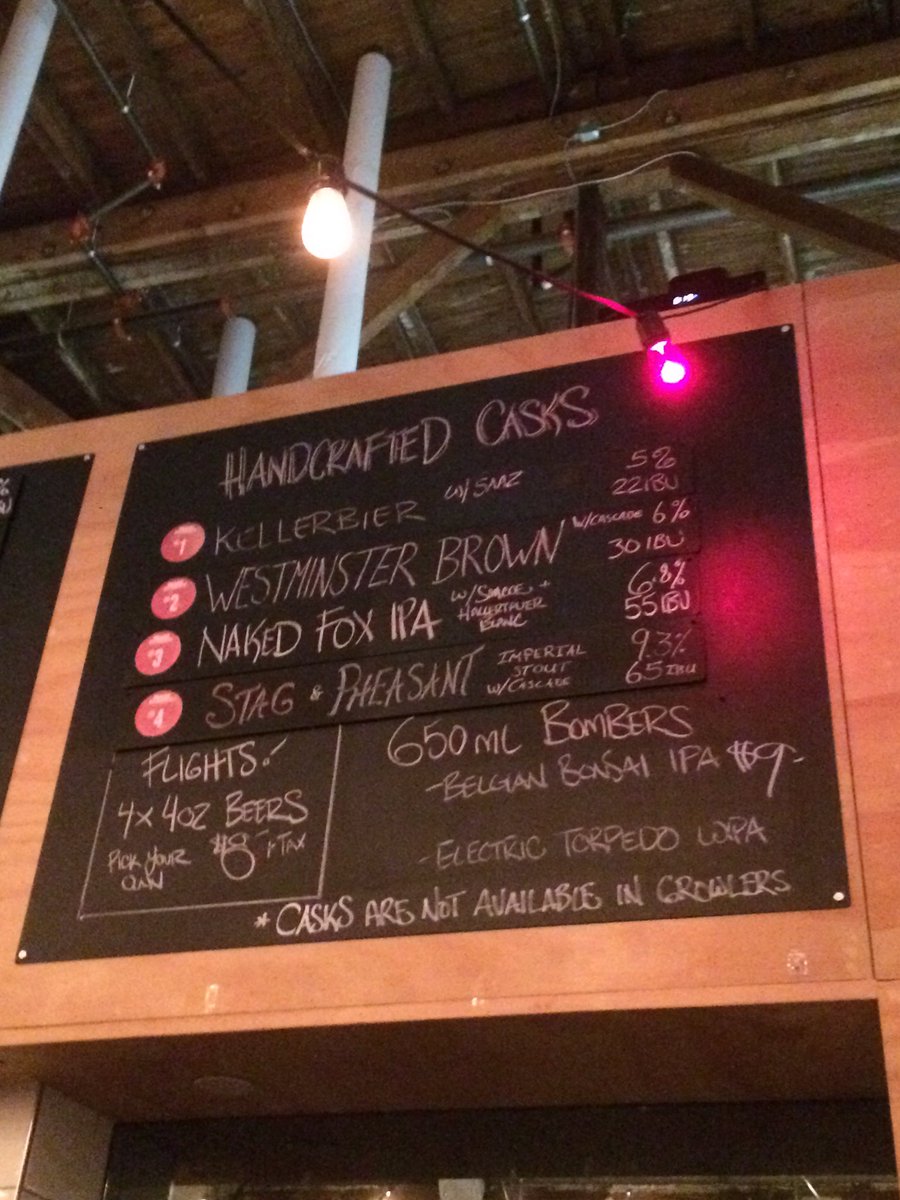 HANDCRAFTED CASKS
1 KELLERBIER W/ SAAZ 5%
22 IBU
2 WESTMINSTER BROWN W/CASCADE 6%
30 IBU
3 NAKED FOX IPA W/ + HALLERTAUER BLANC 6.8%
55 IBU
4 STAG & PHEASANT IMPERIAL STOUT W/CASCADE 9.3%
65 IBU
FLIGHTS!
4x 4OZ BEERS
PICK YOUR OWN $8- + TAX
650 ML BOMBERS
- BELGIAN BONSAI IPA $9-
- ELECTRIC TORPEDO WXPA
* CASKS ARE NOT AVAILABLE IN GROWLERS